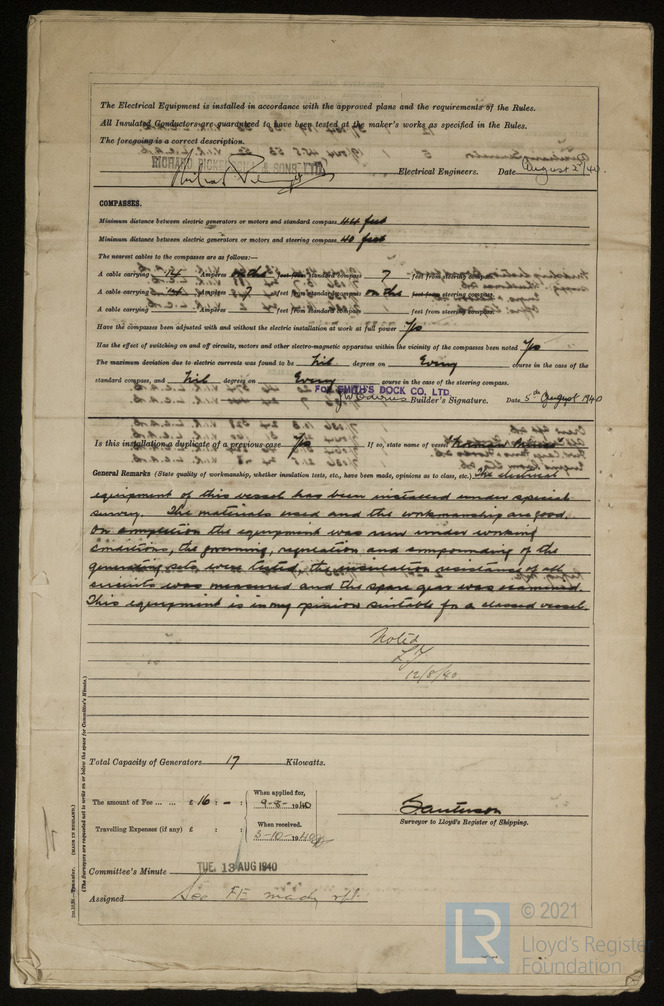 The Electrical Equipment is installed in accordance with the approved plans and the requirements of the Rules.
All Insulated Conductors are guaranteed to have been tested at the maker's works as specified in the Rules.
The foregoing is a correct description.
RICHARD & SONS LTD
Electrical Engineers. Date August 2/40.
COMPASSES.
Minimum distance between electric generators or motors and standard compass 44 feet
Minimum distance between electric generators or motors and steering compass 40 feet
The nearest cables to the compasses are as follows:—
A cable carrying 14 Amperes on the feet from standard compass 7 feet from steering compass.
A cable carrying 14 Amperes 7 feet from standard compass on the feet from steering compass.
A cable carrying Amperes feet from standard compass feet from steering compass.
Have the compasses been adjusted with and without the electric installation at work at full power Yes
Has the effect of switching on and off circuits, motors and other electro-magnetic apparatus within the vicinity of the compasses been noted Yes
The maximum deviation due to electric currents was found to be Nil degrees on Every course in the case of the
standard compass, and Nil degrees on Every course in the case of the steering compass.
FOR SMITH'S DOCK CO. LTD.
Builder's Signature. Date 5th August 1940
Is this installation a duplicate of a previous case Yes If so, state name of vessel
General Remarks (State quality of workmanship, whether insulation tests, etc., have been made, opinions as to class, etc.) The electrical
equipment of this vessel has been installed under special
survey. The materials used and the workmanship are good.
On completion the equipment was run under working
conditions, the governing, regulation and compounding of the
generating sets were tested, the insulation resistance of all
circuits was measured and the spare gear was examined.
This equipment is in my opinion suitable for a classed vessel.
Noted
12/8/40
Total Capacity of Generators 17 Kilowatts.
The amount of Fee ... ... £ 16 : - : When applied for, 9-8-1940
Travelling Expenses (if any) £ : : When received. 3-10-1940
Surveyor to Lloyd's Register of Shipping.
Committee's Minute TUE. 13 AUG 1940
Assigned See FE mach rpt.
Transfer. (MADE IN ENGLAND.)
(The Surveyors are requested not to write on or below the space for Committee's Minute.)
LR
© 2021
Lloyd's Register
Foundation